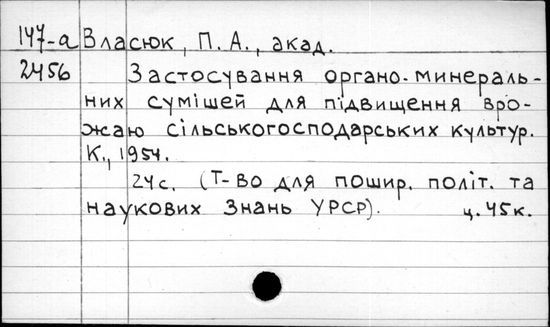 147-а Власюк, П. А., акад.
2456 Застосування органо-минераль-
них сумішей для підвищення вро-
жаю сільськогосподарських культур.
К., 1954.
24с. (Т-во для пошир. політ. та
наукових знань УРСР). ц. 45к.